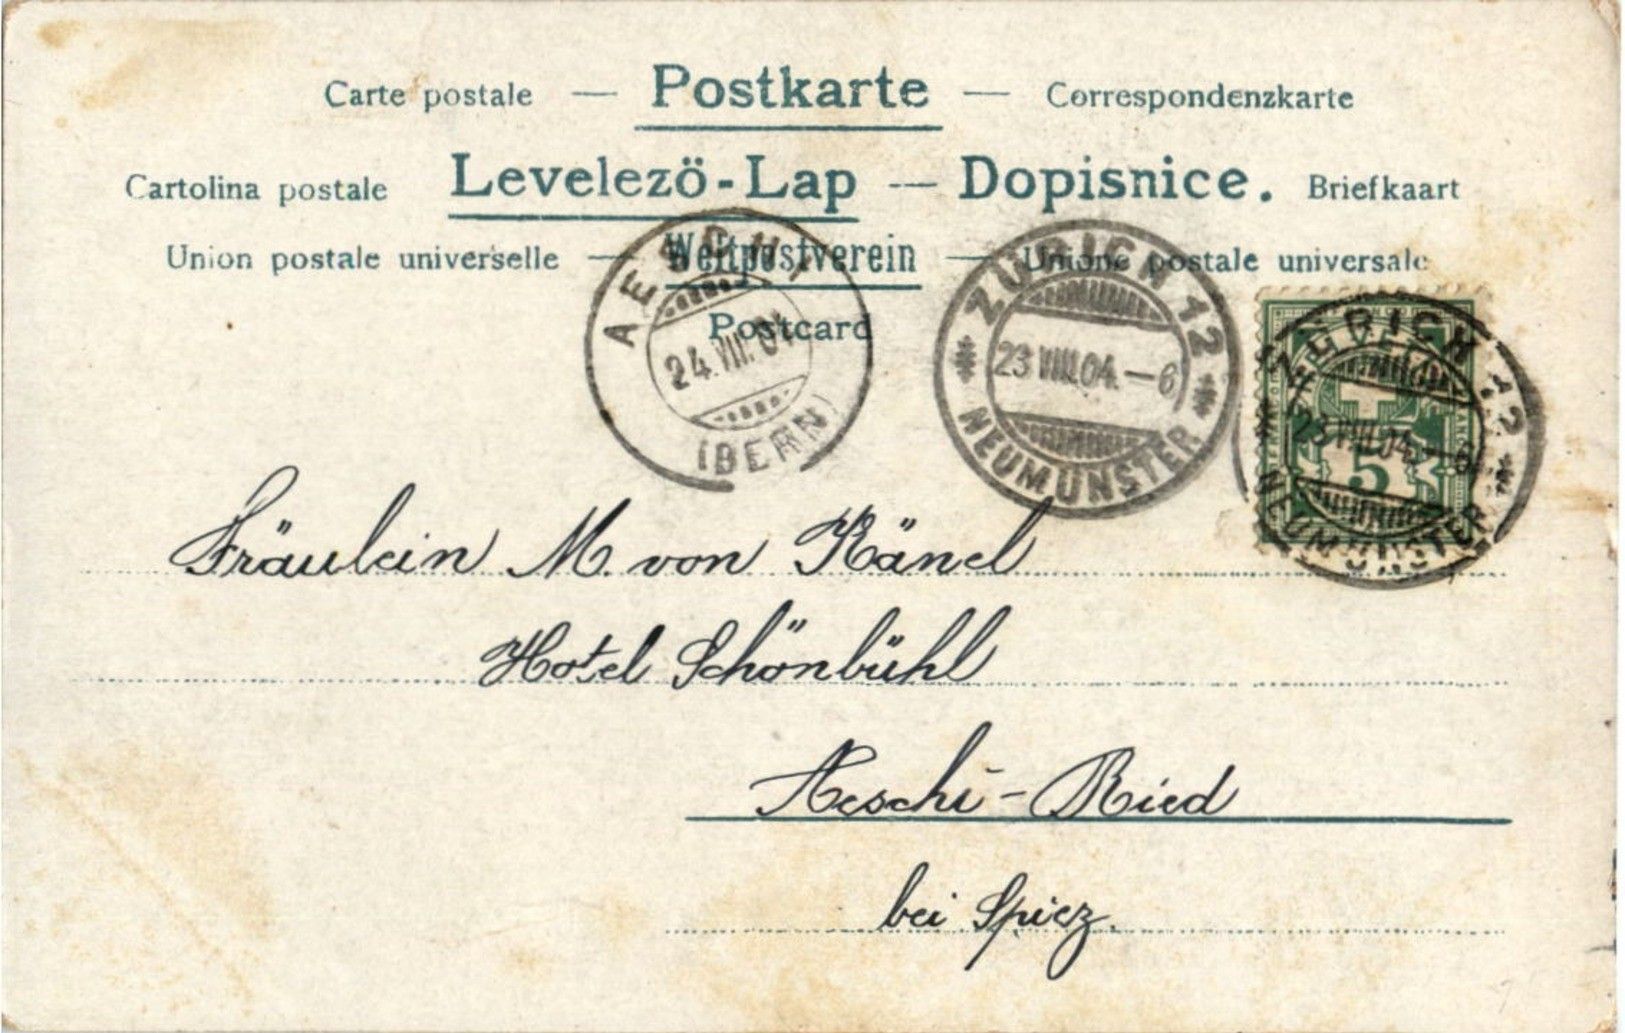 Carte postale — Postkarte — Correspondenzkarte
Cartolina postale Levelezö-Lap — Dopisnice. Briefkaart
Union postale universelle — Weltpostverein — Unione postale universale
Postcard
24.VIII.04
(BERN)
ZÜRICH 12
23.VIII.04.–6
NEUMÜNSTER
ZÜRICH 12
23.VIII.04.–6
NEUMÜNSTER
5
Fräulein M. von Känel
Hotel Schönbühl
Aeschi - Ried
bei Spiez.